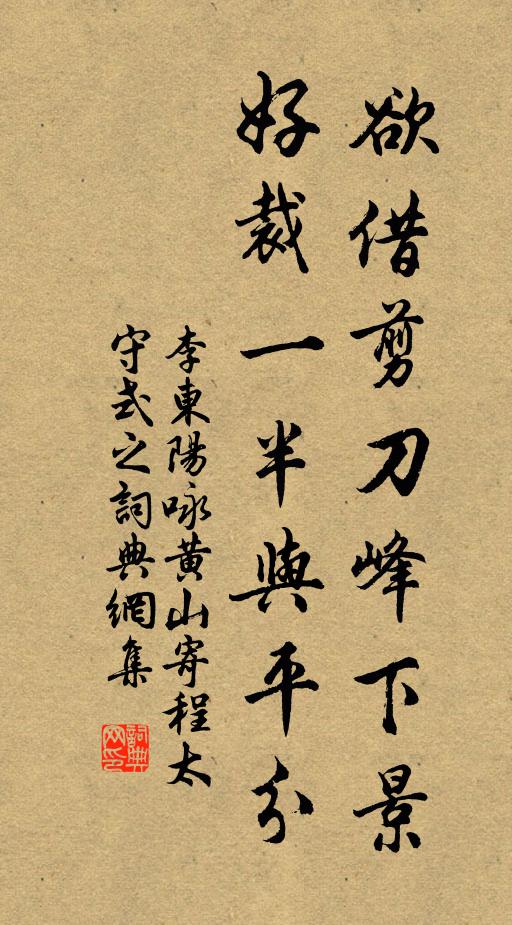 欲借剪刀峰下景
好裁一半與平分
李東陽咏黄山寄程太
守式之詞典網集
詞典网印